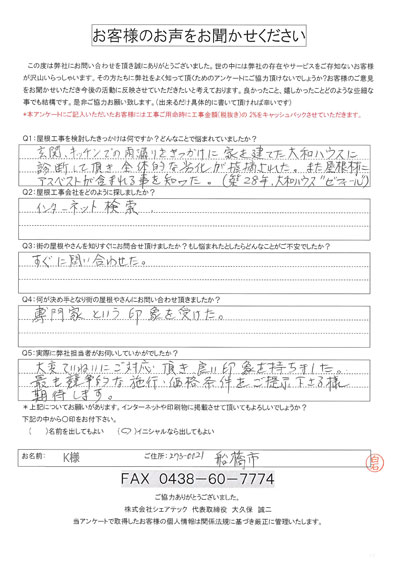 お客様のお声をお聞かせください
この度は弊社にお問い合わせを頂き誠にありがとうございました。世の中には弊社の存在やサービスをご存知ないお客様
が沢山いらっしゃいます。その方たちに弊社をよく知って頂くためのアンケートにご協力頂けないでしょうか？お客様のご意見
をお聞かせいただき今後の活動に反映させていただきたいと考えております。良かったこと、嬉しかったことどのような些細な
事でも結構です。是非ご協力お願い致します。（出来るだけ具体的に書いて頂ければ幸いです）
*本アンケートにご記入いただいたお客様には工事ご用命時に工事金額（税抜き）の2%をキャッシュバックさせていただきます。
Q1：屋根工事を検討したきっかけは何ですか？どんなことで悩まれていましたか？
玄関、キッチンでの雨漏りをきっかけに家を建てた大和ハウスに
診断して頂き全体的な劣化が指摘された。また屋根材に
アスベストが含まれる事を知った。（築28年、大和ハウス"ビオフィール"）
Q2：屋根工事会社をどのように探しましたか？
インターネット検索
Q3：街の屋根やさんを知りすぐにお問合せ頂けましたか？もし悩まれたとしたらどんなことがご不安でしたか？
すぐに問い合わせた。
Q4：何が決め手となり街の屋根やさんにお問い合わせ頂きましたか？
専門家という印象を受けた。
Q5：実際に弊社担当者がお伺いしていかがでしたか？
大変ていねいにご対応頂き良い印象を持ちました。
最も競争的な施行・価格条件をご提示下さる様
期待します。
*上記についてお願いがあります。インターネットや印刷物に掲載させて頂いてもよろしいでしょうか？
下記の中から〇印をお付け下さい。
（ ）名前を出してもよい （〇）イニシャルなら出してもよい
お名前： K様 ご住所：273-0121 船橋市
FAX 0438-60-7774
ご協力ありがとうございました。
株式会社シェアテック 代表取締役 大久保 誠二
当アンケートで取得したお客様の個人情報は関係法規に基づき厳正に管理いたします。